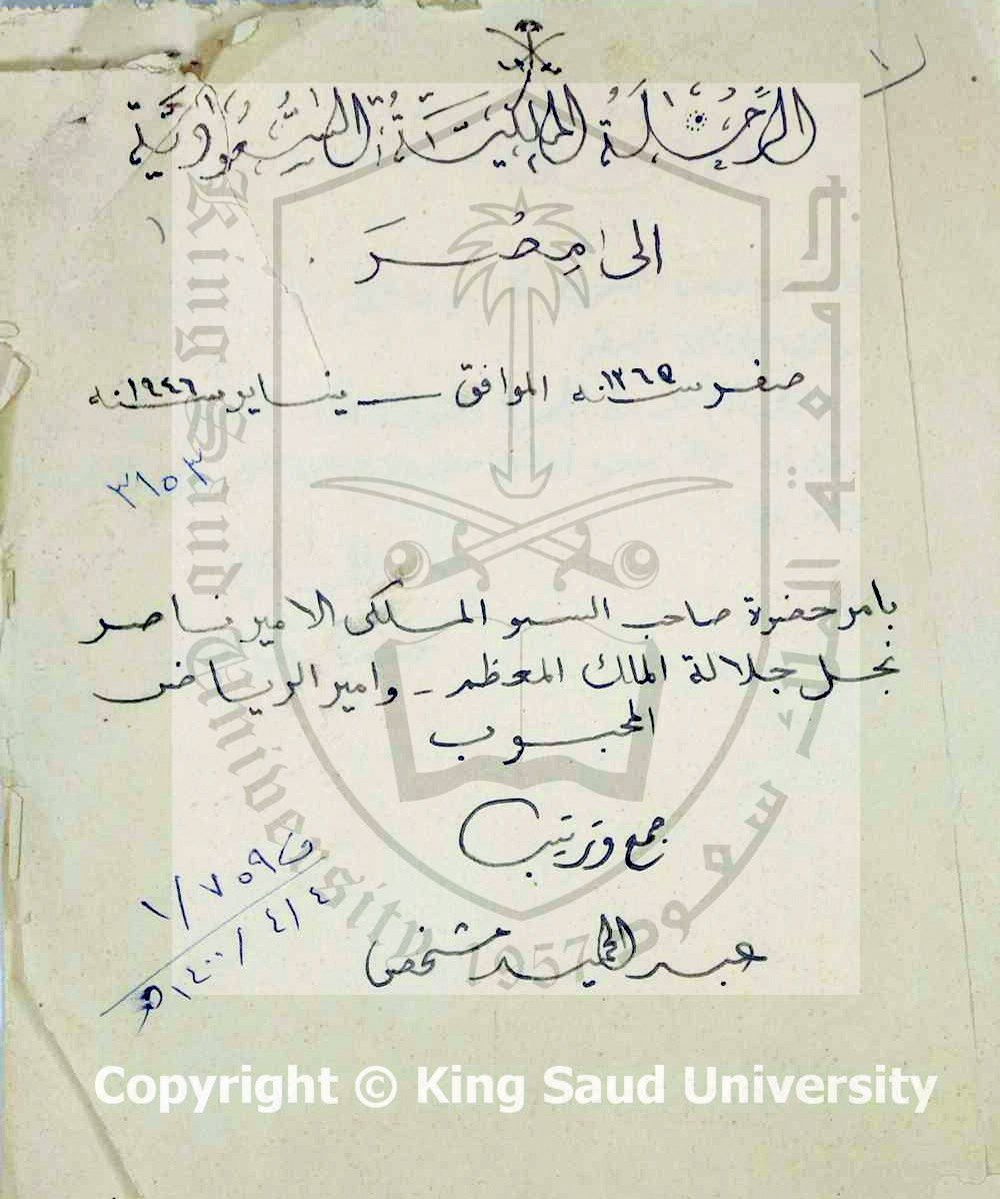 الرِّحْلَةُ المَلَكِيَّةُ السُّعُودِيَّة
الى مِصْرَ
صفر سنه ١٣٦٥ الموافق ـ يناير سنه ١٩٤٦
٣١٥٣
بامر حضرة صاحب السمو الملكى الامير ناصر
نجل جلالة الملك المعظم ـ وامير الرياض
المحبوب
جمع وترتيب
عبد الحميد مشخص
ف ٧٥٩/١
٤/٤/١٤٠٠هـ
جامعة الملك سعود
King Saud University
1957
Copyright © King Saud University